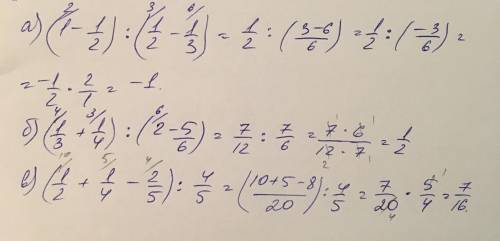 а) (²⁄1 - 1/2) : (³⁄1/2 - ⁶⁄1/3) = 1/2 : (3-6/6) = 1/2 : (-3/6) =
= -1/2 · 2/1 = -1.
б) (⁴⁄1/3 + ³⁄1/4) : (⁶⁄2 - 5/6) = 7/12 : 7/6 = 7·6/12·7 = 1/2
в) (¹⁰⁄1/2 + ⁵⁄1/4 - ⁴⁄2/5) : 4/5 = (10+5-8/20) : 4/5 = 7/20 · 5/4 = 7/16.